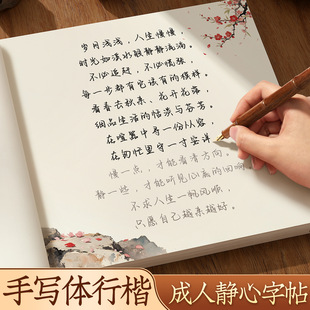 岁月浅浅，人生慢慢，
时光如溪水般静静流淌。
不必追赶，不必慌张，
每一步都有它该有的模样。
看春去秋来，花开花落，
细品生活的恬淡与芬芳。
在喧嚣中寻一份从容，
在匆忙里守一寸安详。
慢一点，才能看清方向。
静一些，才能听见心底的回响。
不求人生一帆风顺，
只愿自己越来越好。
手写体行楷
成人静心字帖